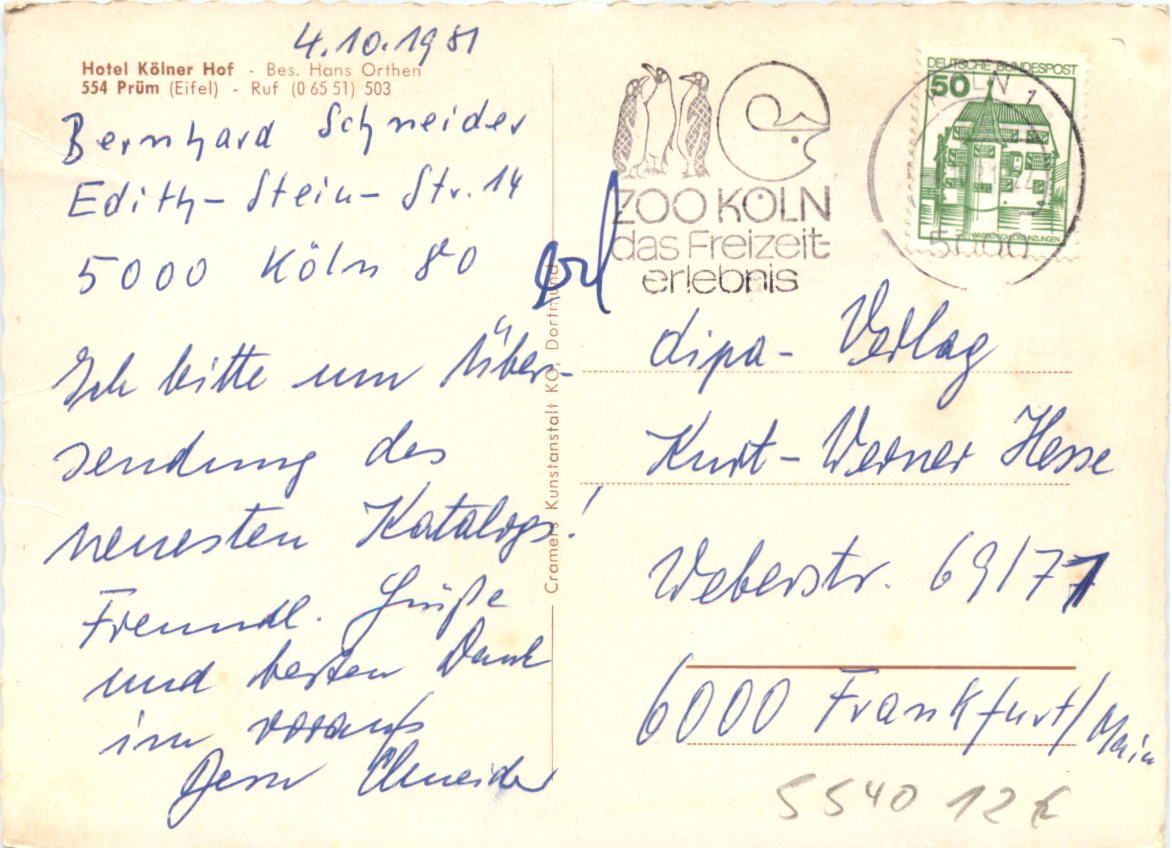 4.10.1981
Hotel Kölner Hof - Bes. Hans Orthen
554 Prüm (Eifel) - Ruf (0 65 51) 503
Bernhard Schneider
Edith-Stein-Str. 14
5000 Köln 80
Ich bitte um Über-
sendung des
neuesten Katalogs!
Freundl. Grüße
und besten Dank
im voraus
Schneider
Cramers Kunstanstalt KG, Dortmund
ZOO KÖLN
das Freizeit
erlebnis
DEUTSCHE BUNDESPOST
50
KÖLN 1
5000
dipa-Verlag
Kurt-Werner Hesse
Weberstr. 69/71
6000 Frankfurt/Main
5540 12 €